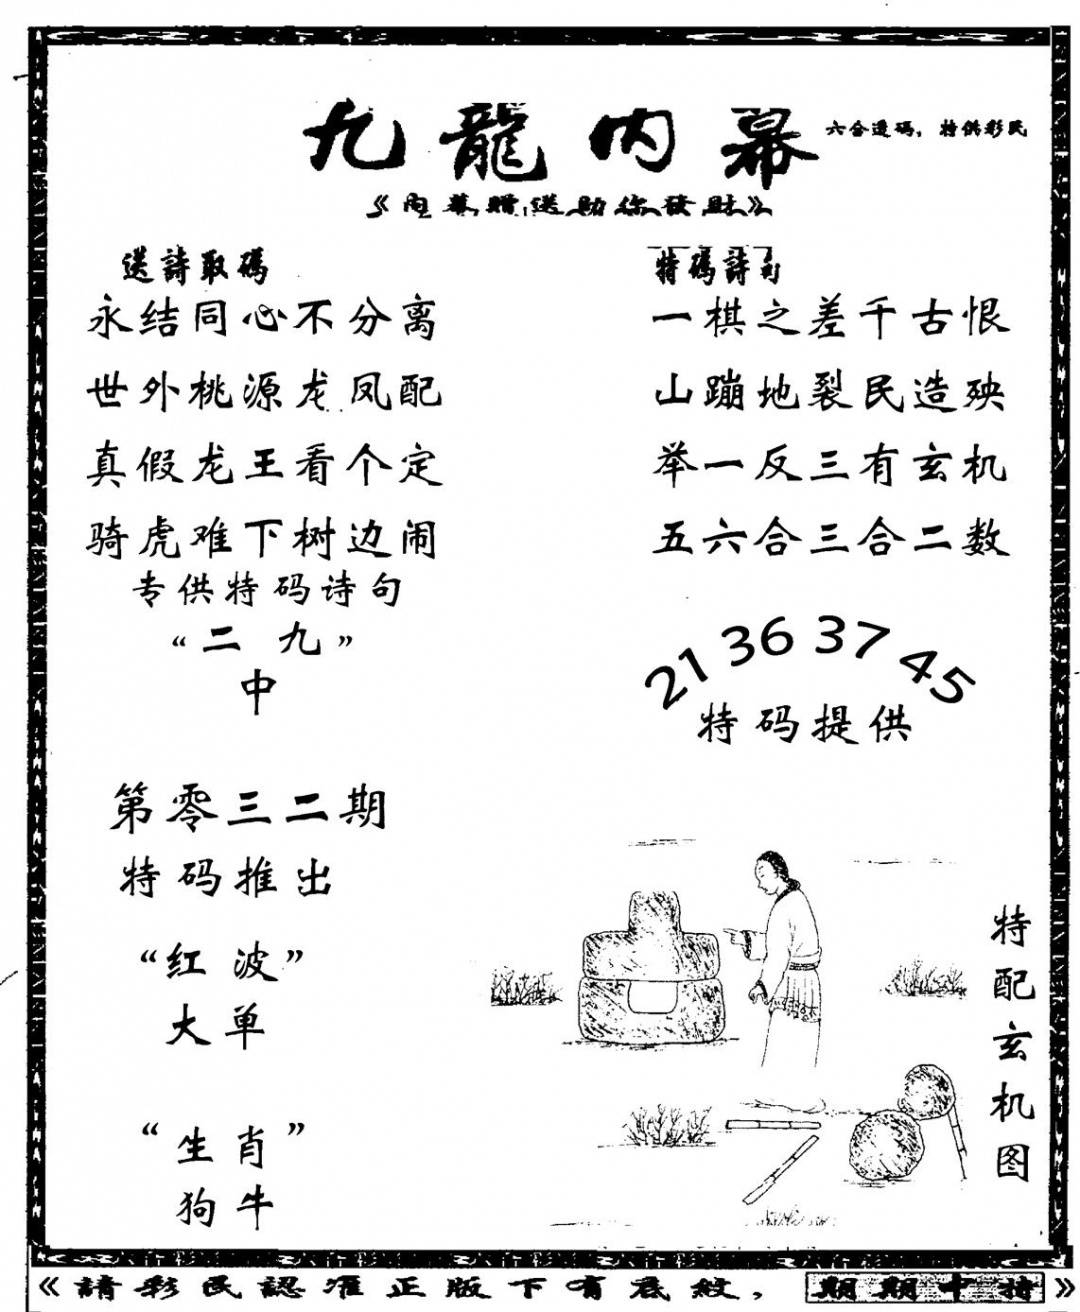 九龍内幕
六合透码，特供彩民
《内幕赠送助你發财》
送詩取碼
永结同心不分离
世外桃源龙凤配
真假龙王看个定
骑虎难下树边闹
专供特码诗句
“二 九”
中
第零三二期
特码推出
“红 波”
大单
“生肖”
狗牛
特碼詩句
一棋之差千古恨
山蹦地裂民造殃
举一反三有玄机
五六合三合二数
21 36 37 45
特码提供
特配玄机图
《請彩民認准正版下有底紋，期期中特》